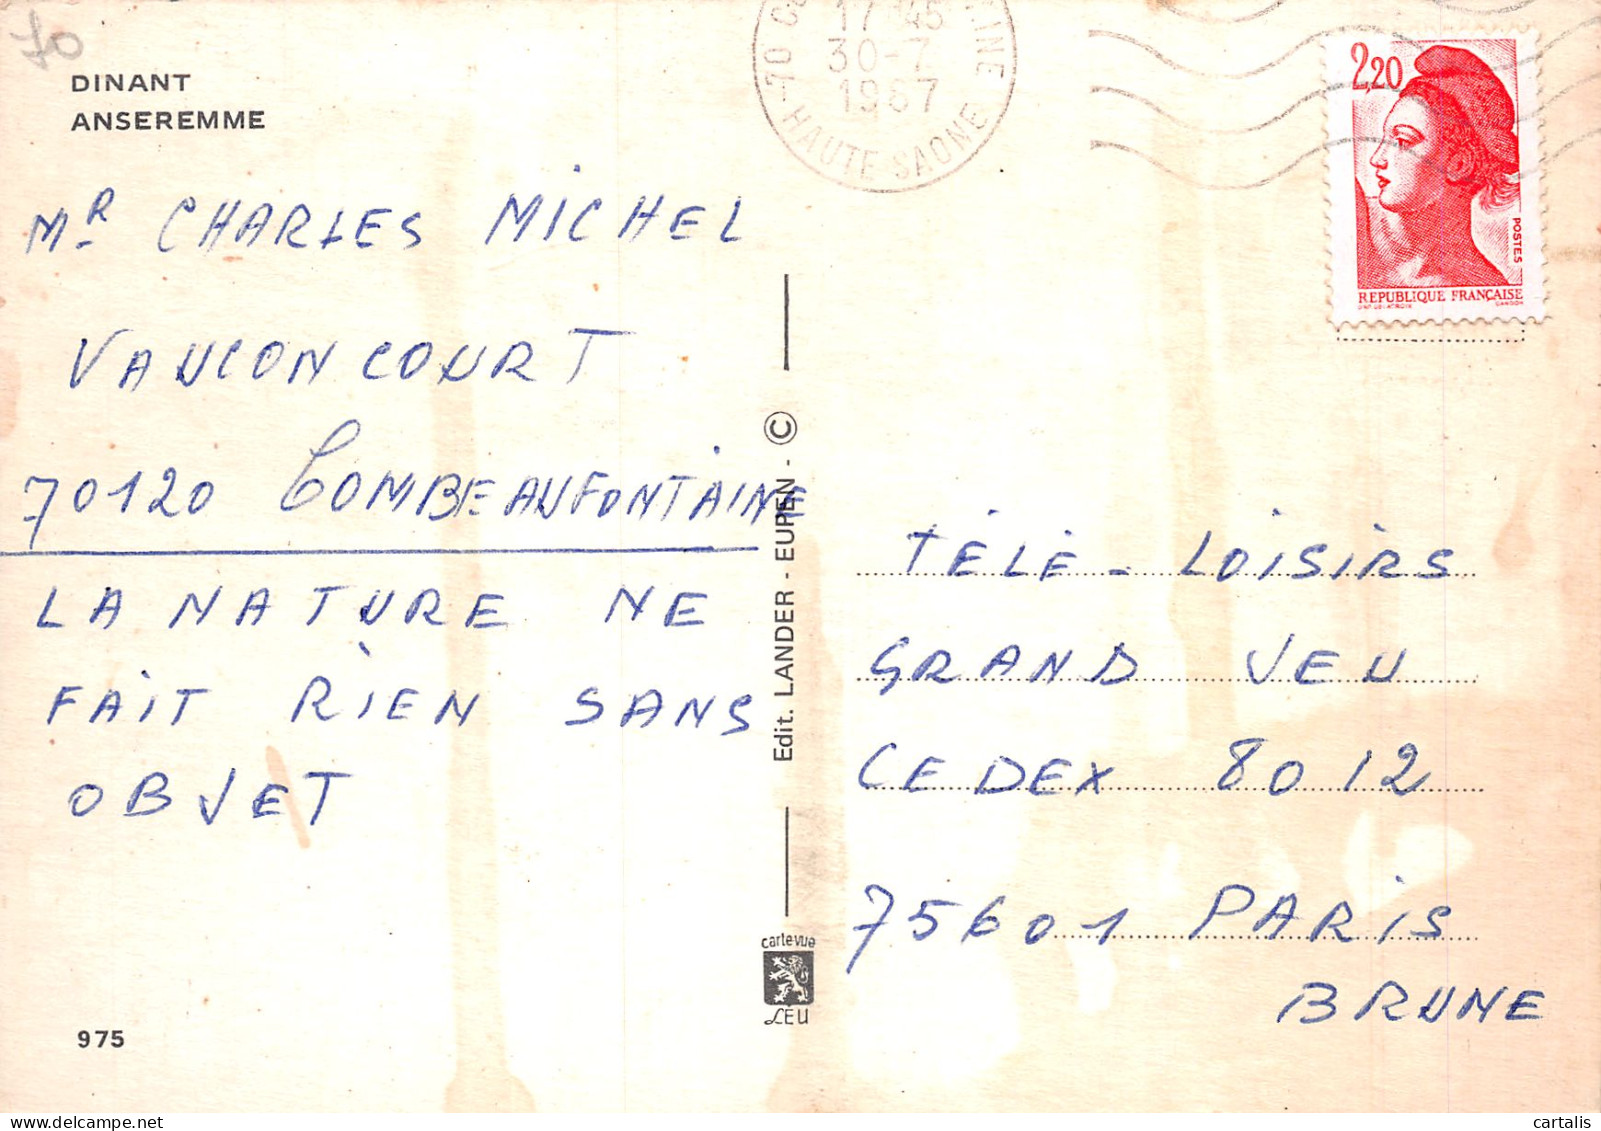 70
DINANT
ANSEREMME
17 45
30-7
1987
70
HAUTE SAONE
2,20
POSTES
REPUBLIQUE FRANÇAISE
GANDON
Mr CHARLES MICHEL
VAUCONCOURT
70120 COMBEAUFONTAINE
LA NATURE NE
FAIT RIEN SANS
OBJET
Edit. LANDER - EUPEN - ©
TÉLÉ - LOISIRS
GRAND JEU
CEDEX 8012
75601 PARIS
BRUNE
carte-vue
LEU
975
cartalis